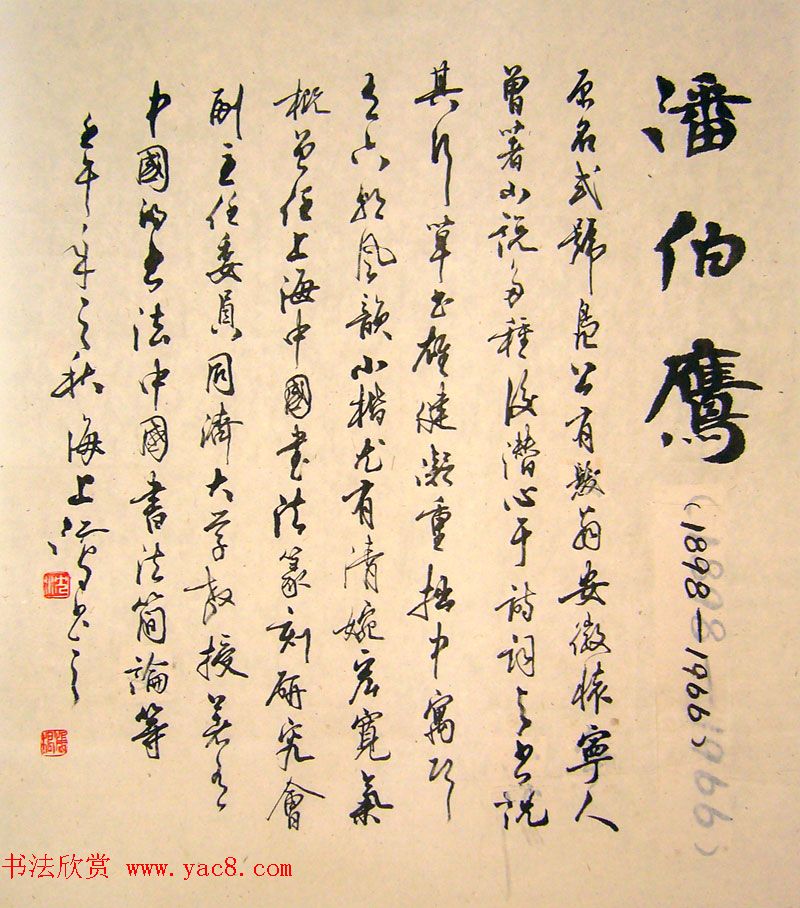 潘伯鹰
(1898—1966)
原名式號凫公有髮翁安徽懷寧人
曾著小说多種後潜心于詩词与书说
其行草书雄健凝重拙中寓巧
有六朝风韻小楷尤有清婉宏寬氣
概曾任上海中國书法篆刻研究會
副主任委員同濟大学教授著有
中國的书法中國書法简論等
壬午年之秋海上
书法欣赏 www.yac8.com